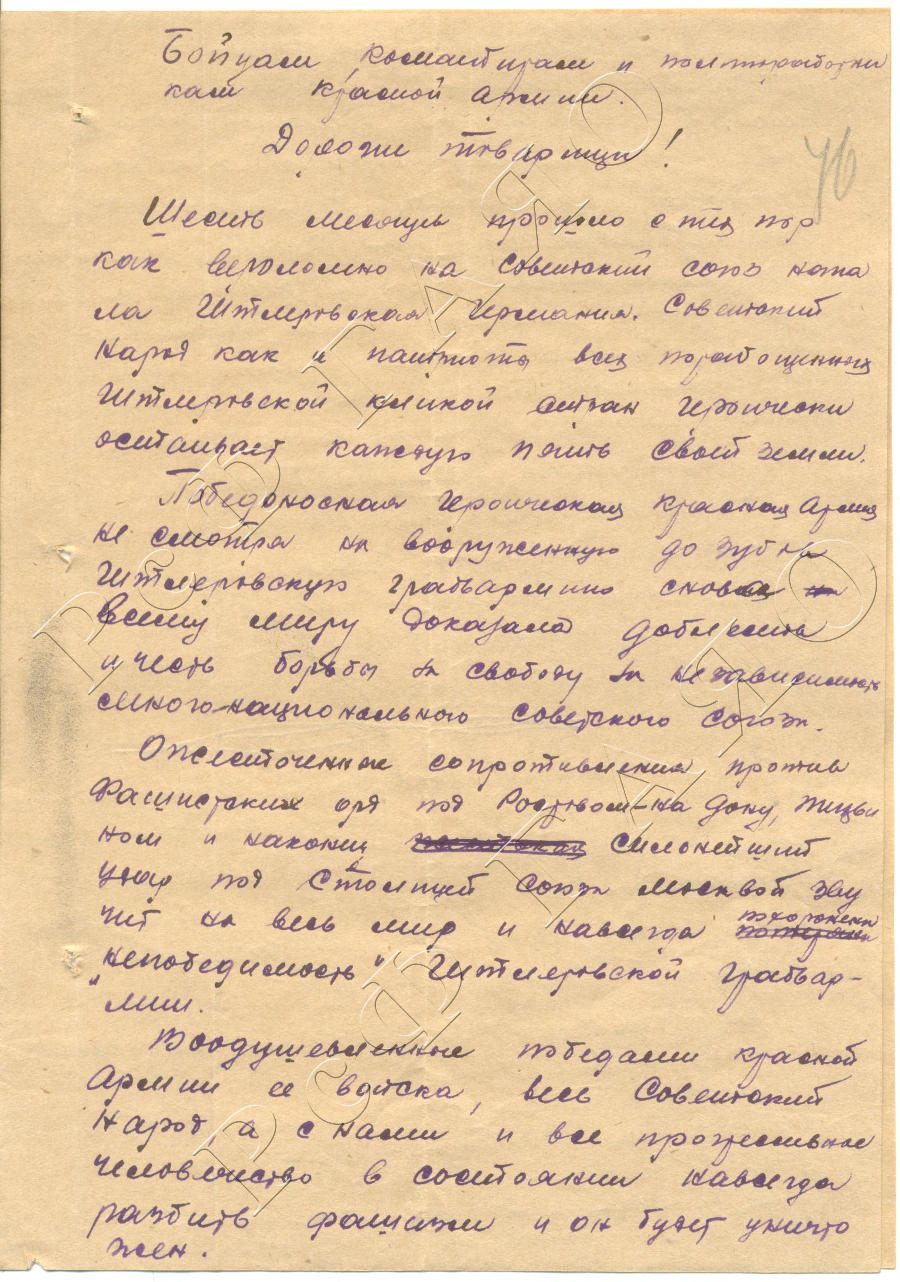 Бойцам, командирам и политработни
кам Красной Армии.
Дорогие товарищи!
76
Шесть месяцев прошло с тех пор
как вероломно на Советский союз напа
ла Гитлеровская Германия. Советский
народ как и патриоты всех порабощенных
Гитлеровской кликой стран героически
остаивает каждую пядь своей земли.
Победоносная героическая красная Армия
не смотря на вооруженную до зубов
Гитлеровскую грабьармию снова
всему миру доказала доблесть
и честь борьбы за свободу за независимость
много-национального советского союза.
Ожесточенные сопротивления против
Фашистских орд под Ростовом-на Дону, Тихви
ном и наконец сильнейший
удар под столицей союза Москвой зву
чит на весь мир и навсегда похоронена
"непобедимость" Гитлеровской грабьар-
мии.
Воодушевленные победами красной
Армии ее войска, весь Советский
Народ, а с нами и все прогрессивное
человечество в состоянии навсегда
разбить фашизм и он будет уничто
жен.
РСФ ГАЯО
РСФ ГАЯО